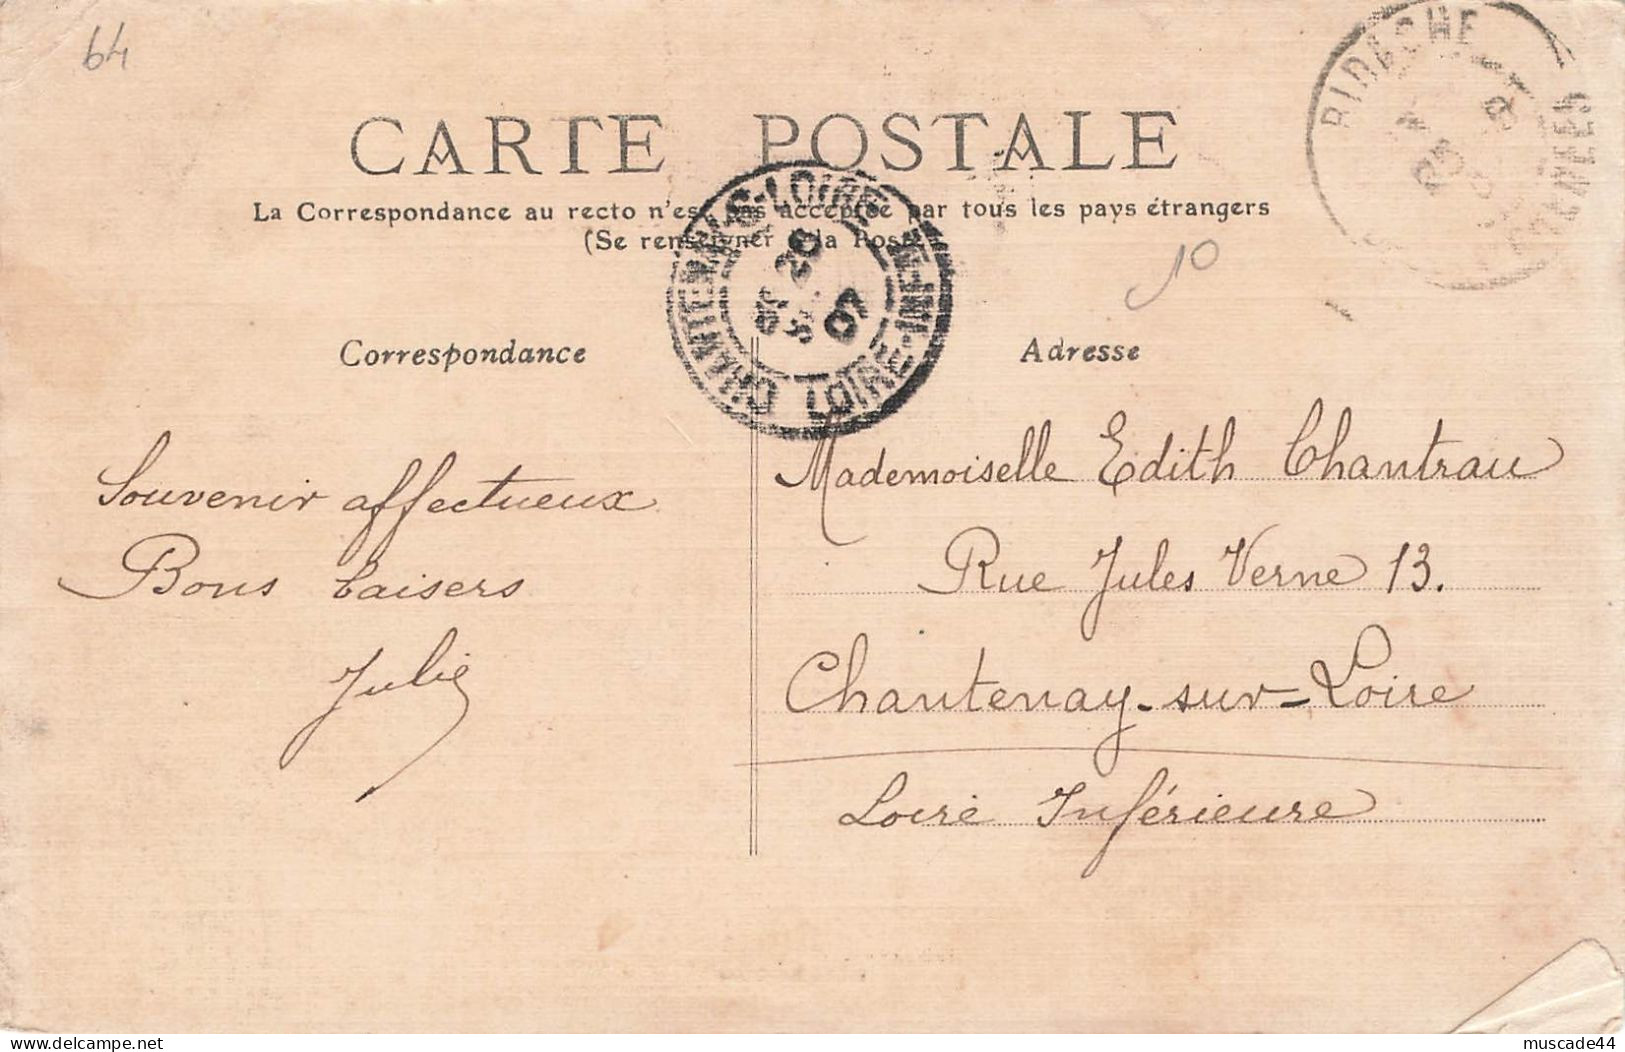 64
CARTE POSTALE
La Correspondance au recto n'est pas acceptée par tous les pays étrangers
(Se renseigner à la Poste
BIDACHE
CHANTENAY-S-LOIRE
20
07
LOIRE-INFRE
10
Correspondance
Adresse
Souvenir affectueux
Bons baisers
Julie
Mademoiselle Edith Chantrau
Rue Jules Verne 13.
Chantenay-sur-Loire
Loire Inférieure
Delcampe.net
muscade44